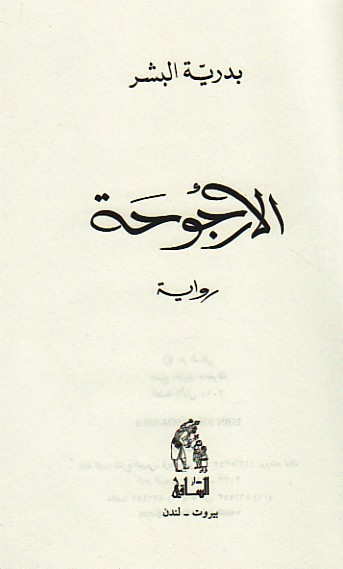 بدريّة البشر
الأرجُوحَة
رواية
دار
الساقي
بيروت - لندن